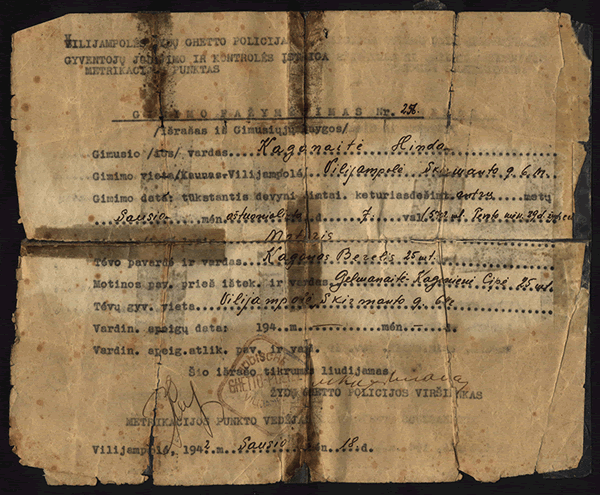 VILIJAMPOLĖS ŽYDŲ GHETTO POLICIJA
GYVENTOJŲ JUDĖJIMO IR KONTROLĖS ĮSTAIGA
METRIKACIJOS PUNKTAS
GIMIMO PAŽYMĖJIMAS Nr. 28
/Išrašas iš Gimusiųjų Knygos/
Gimusio /ios/ vardas Kaganaitė Hinda
Gimimo vieta/Kaunas-Vilijampolė/ Vilijampolė Skirmanto g. 6 br.
Gimimo data: tūkstantis devyni šimtai keturiasdešimt antrų metų
Sausio mėn. aštuonioliktą d. val.
Moteris
Tėvo pavardė ir vardas Kaganas Berelis 25 mt.
Motinos pav. prieš ištek. ir vardas Gelmanaitė Kaganienė Cipė 25 mt.
Tėvų gyv. vieta Vilijampolė, Skirmanto g. 6 br.
Vardin. apeigų data: 194 m. mėn. d.
Vardin. apeig. atlik. pav. ir vard.
Šio išrašo tikrumas liudijamas
ŽYDŲ GHETTO POLICIJOS VIRŠININKAS
METRIKACIJOS PUNKTO VEDĖJAS
Vilijampolė, 1942 m. Sausio mėn. 18 d.